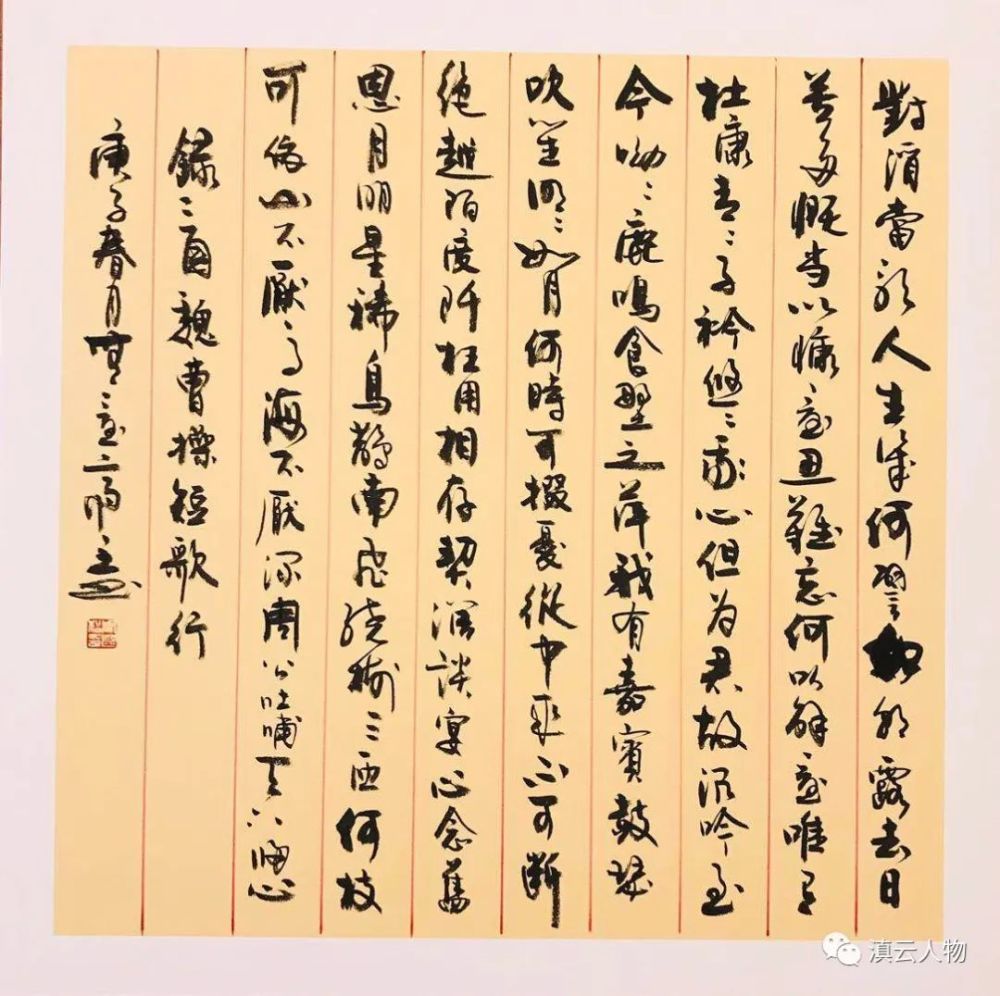 對酒當歌人生幾何譬如朝露去日
苦多慨当以慷憂思難忘何以解憂唯有
杜康青々子衿悠々我心但为君故沉吟至
今呦々鹿鳴食野之萍我有嘉賓鼓瑟
吹笙明々如月何時可掇憂從中来不可断
絶越陌度阡枉用相存契阔談宴心念舊
恩月明星稀烏鵲南飛绕樹三匝何枝
可依山不厭高海不厭深周公吐哺天下歸心
録三国魏曹操短歌行
庚子春月
滇云人物